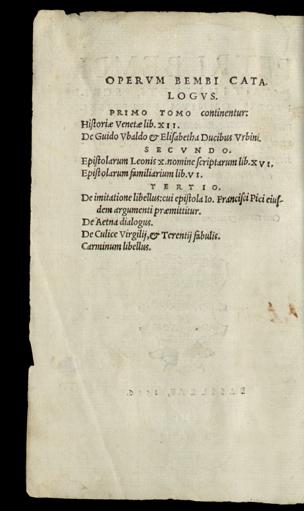 OPERVM BEMBI CATA
LOGVS.
PRIMO TOMO continentur:
Historiæ Venetæ lib. XII.
De Guido Vbaldo & Elisabetha Ducibus Vrbini.
SECVNDO.
Epistolarum Leonis X. nomine scriptarum lib. XVI.
Epistolarum familiarium lib. VI.
TERTIO.
De imitatione libellus: cui epistola Io. Francisci Pici eius-
dem argumenti præmittitur.
De Aetna dialogus.
De Culice Virgilij, & Terentij fabulis.
Carminum libellus.